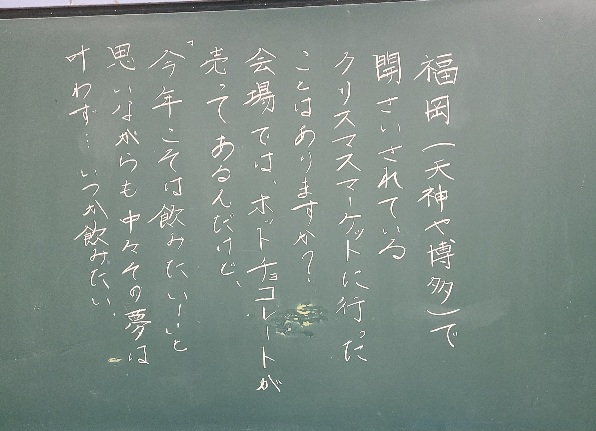 福岡(天神や博多)で
開さいされている
クリスマスマーケットに行った
ことはありますか?
会場では、ホットチョコレートが
売ってあるんだけど、
「今年こそは飲みたい!」と
思いながらも中々その夢は
叶わず…いつか飲みたい。